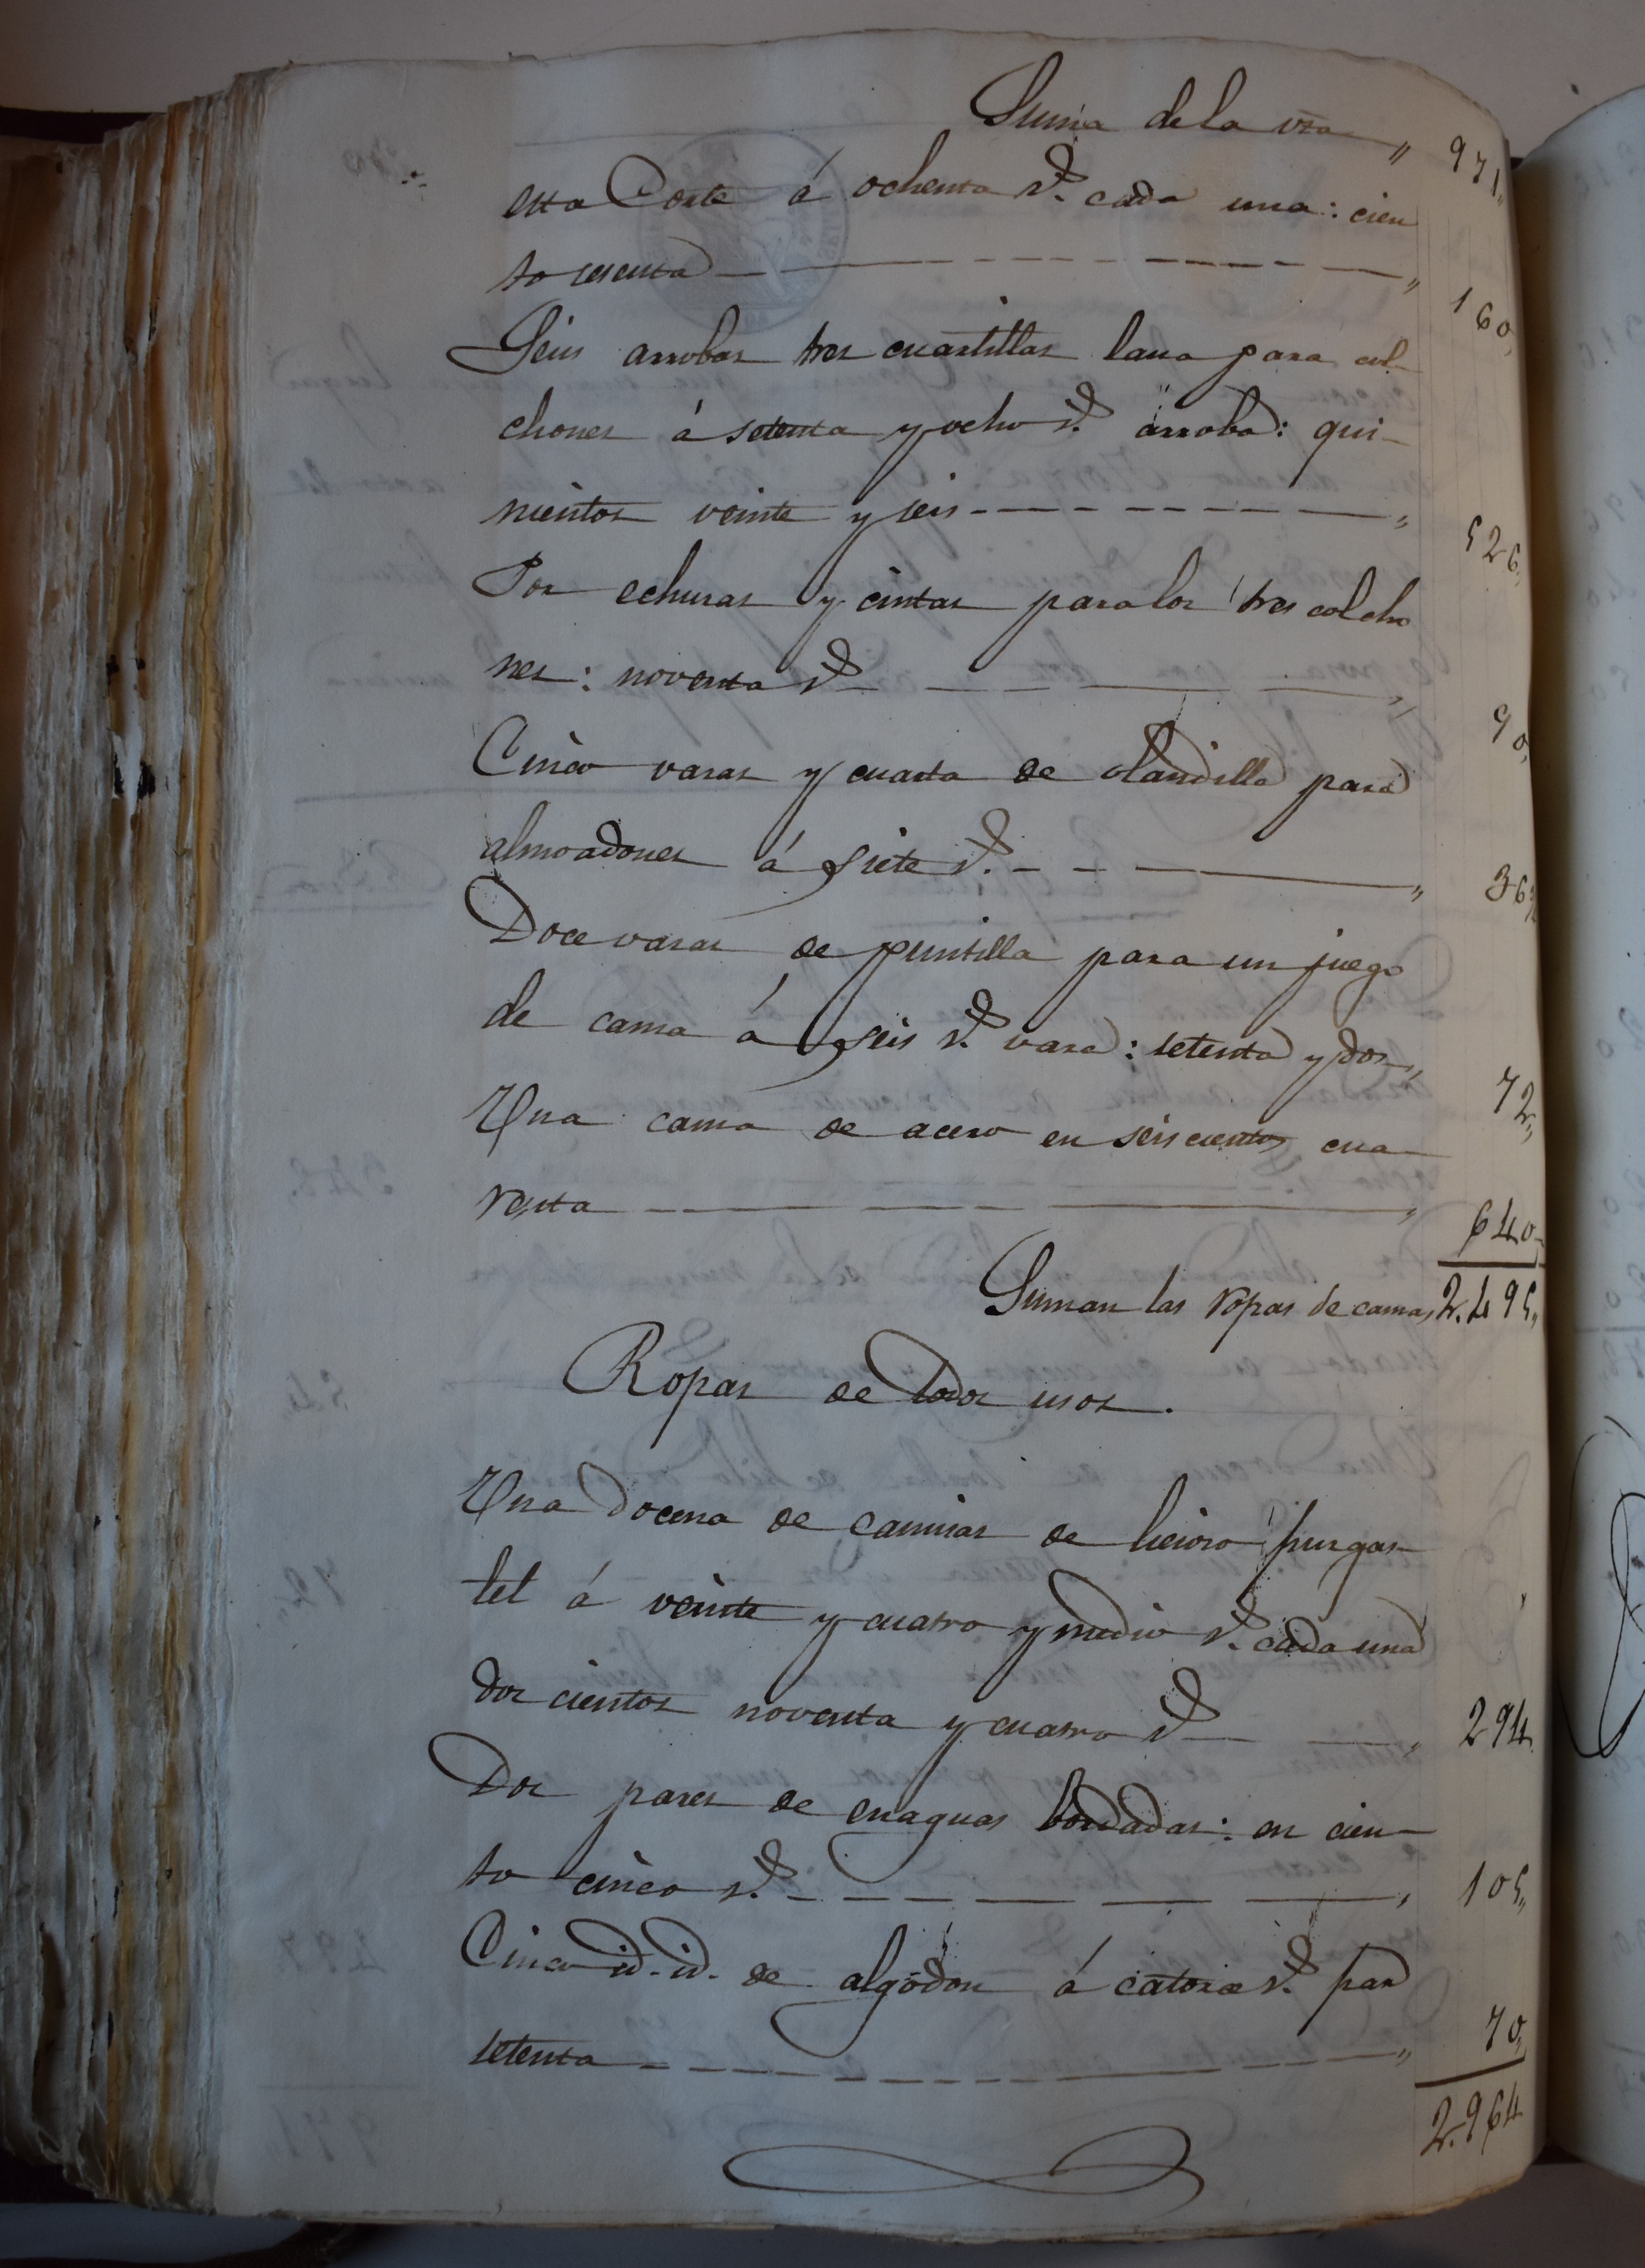 Suma de la vta " 971"
esta Corte á ochenta rs. cada una: cien
to sesenta " 160,
Seis arrobas tres cuartillas lana para col-
chones á setenta y ocho rs. arroba: qui-
nientos veinte y seis " 526,
Por echuras y cintas para los tres colcho
nes: noventa rs. " 90,
Cinco varas y cuarta de olandilla para
almoadones á siete rs. " 36
Doce varas de puntilla para un juego
de cama á seis rs. vara: setenta y dos " 72"
Una cama de acero en seiscientos cua-
renta " 640
Suman las ropas de camas 2.495"
Ropas de todos usos.
Una docena de camisas de lienzo
á veinte y cuatro y medio rs. cada una
dos cientos noventa y cuatro rs. " 294
Dos pares de enaguas bordadas: en cien-
to cinco rs. " 105"
Cinco id. id. de algodon á catorce rs. par
setenta " 70,
2.964